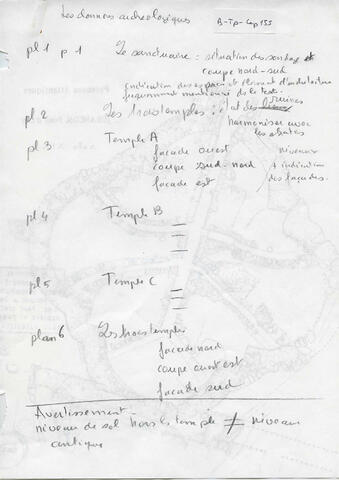 Les données archéologiques
B-Tp-Cap 155
pl 1 p 1 Le sanctuaire : situation des sondages et
coupe nord-sud
indication des espaces et éléments d'architecture
fréquemment mentionnés ds le texte.
pl 2 Les trois temples : état des ruines
harmoniser avec
les
pl 3 Temple A
façade ouest
coupe sud-nord
façade est
niveaux
+ indication
des façades.
pl 4 Temple B
pl 5 Temple C
plan 6 Les trois temples
façade nord
coupe ouest est
façade sud
Avertissement -
niveau de sol hors les temple ≠ niveau
antique